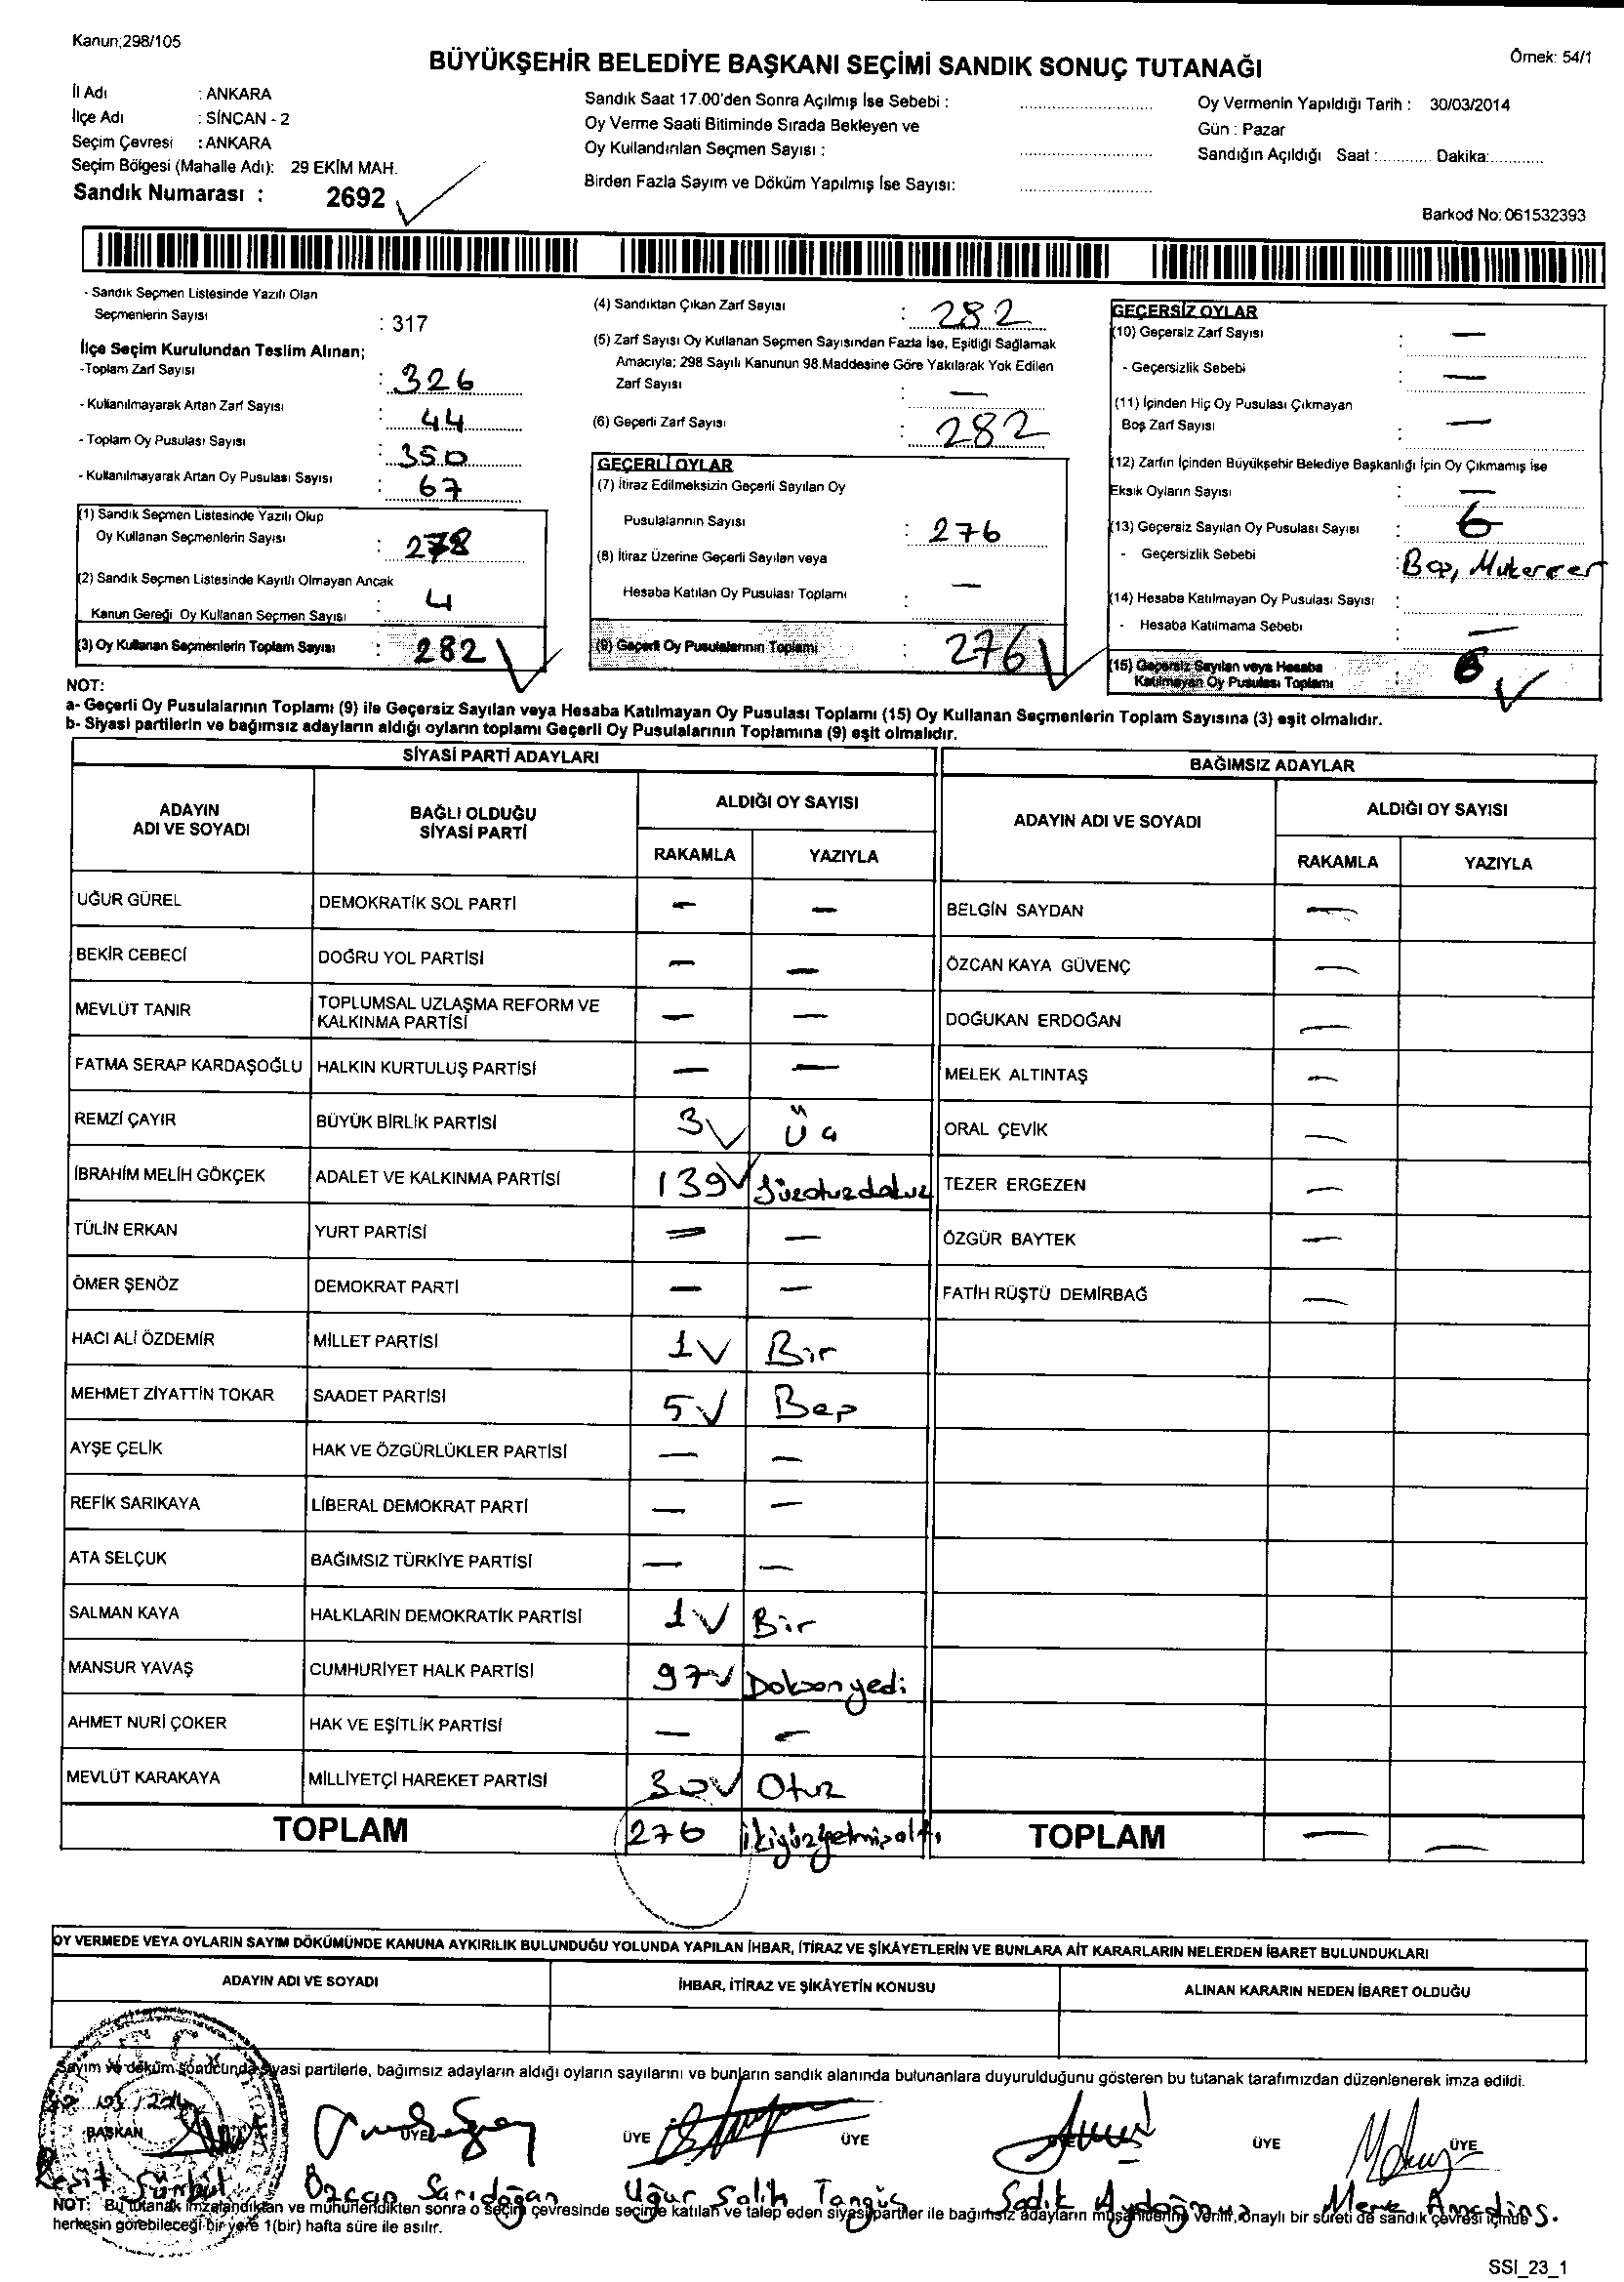 Kanun;298/105
Örnek: 54/1
BÜYÜKŞEHİR BELEDİYE BAŞKANI SEÇİMİ SANDIK SONUÇ TUTANAĞI
İl Adı : ANKARA
İlçe Adı : SİNCAN - 2
Seçim Çevresi : ANKARA
Seçim Bölgesi (Mahalle Adı): 29 EKİM MAH.
Sandık Numarası : 2692
Sandık Saat 17.00'den Sonra Açılmış İse Sebebi :
Oy Verme Saati Bitiminde Sırada Bekleyen ve
Oy Kullandırılan Seçmen Sayısı :
Birden Fazla Sayım ve Döküm Yapılmış İse Sayısı:
Oy Vermenin Yapıldığı Tarih : 30/03/2014
Gün : Pazar
Sandığın Açıldığı Saat :............ Dakika:............
Barkod No: 061532393
- Sandık Seçmen Listesinde Yazılı Olan
Seçmenlerin Sayısı : 317
İlçe Seçim Kurulundan Teslim Alınan;
-Toplam Zarf Sayısı : 326
- Kullanılmayarak Artan Zarf Sayısı : 44
- Toplam Oy Pusulası Sayısı : 350
- Kullanılmayarak Artan Oy Pusulası Sayısı : 67
(1) Sandık Seçmen Listesinde Yazılı Olup
Oy Kullanan Seçmenlerin Sayısı : 278
(2) Sandık Seçmen Listesinde Kayıtlı Olmayan Ancak
Kanun Gereği Oy Kullanan Seçmen Sayısı : 4
(3) Oy Kullanan Seçmenlerin Toplam Sayısı : 282
(4) Sandıktan Çıkan Zarf Sayısı : 282
(5) Zarf Sayısı Oy Kullanan Seçmen Sayısından Fazla İse, Eşitliği Sağlamak
Amacıyla; 298 Sayılı Kanunun 98.Maddesine Göre Yakılarak Yok Edilen
Zarf Sayısı : —
(6) Geçerli Zarf Sayısı : 282
GEÇERLİ OYLAR
(7) İtiraz Edilmeksizin Geçerli Sayılan Oy
Pusulalarının Sayısı : 276
(8) İtiraz Üzerine Geçerli Sayılan veya
Hesaba Katılan Oy Pusulası Toplamı : —
(9) Geçerli Oy Pusulalarının Toplamı : 276
GEÇERSİZ OYLAR
(10) Geçersiz Zarf Sayısı : —
- Geçersizlik Sebebi : —
(11) İçinden Hiç Oy Pusulası Çıkmayan
Boş Zarf Sayısı : —
(12) Zarfın İçinden Büyükşehir Belediye Başkanlığı İçin Oy Çıkmamış İse
Eksik Oyların Sayısı : —
(13) Geçersiz Sayılan Oy Pusulası Sayısı : 6
- Geçersizlik Sebebi : Boş, Mükerrer
(14) Hesaba Katılmayan Oy Pusulası Sayısı :
- Hesaba Katılmama Sebebi : —
(15) Geçersiz Sayılan veya Hesaba
Katılmayan Oy Pusulası Toplamı : 6
NOT:
a- Geçerli Oy Pusulalarının Toplamı (9) ile Geçersiz Sayılan veya Hesaba Katılmayan Oy Pusulası Toplamı (15) Oy Kullanan Seçmenlerin Toplam Sayısına (3) eşit olmalıdır.
b- Siyasi partilerin ve bağımsız adayların aldığı oyların toplamı Geçerli Oy Pusulalarının Toplamına (9) eşit olmalıdır.
SİYASİ PARTİ ADAYLARI
ADAYIN ADI VE SOYADI BAĞLI OLDUĞU SİYASİ PARTİ ALDIĞI OY SAYISI
RAKAMLA YAZIYLA
UĞUR GÜREL DEMOKRATİK SOL PARTİ — —
BEKİR CEBECİ DOĞRU YOL PARTİSİ — —
MEVLÜT TANIR TOPLUMSAL UZLAŞMA REFORM VE KALKINMA PARTİSİ — —
FATMA SERAP KARDAŞOĞLU HALKIN KURTULUŞ PARTİSİ — —
REMZİ ÇAYIR BÜYÜK BİRLİK PARTİSİ 3 Üç
İBRAHİM MELİH GÖKÇEK ADALET VE KALKINMA PARTİSİ 139 Yüzotuzdokuz
TÜLİN ERKAN YURT PARTİSİ — —
ÖMER ŞENÖZ DEMOKRAT PARTİ — —
HACI ALİ ÖZDEMİR MİLLET PARTİSİ 1 Bir
MEHMET ZİYATTİN TOKAR SAADET PARTİSİ 5 Beş
AYŞE ÇELİK HAK VE ÖZGÜRLÜKLER PARTİSİ — —
REFİK SARIKAYA LİBERAL DEMOKRAT PARTİ — —
ATA SELÇUK BAĞIMSIZ TÜRKİYE PARTİSİ — —
SALMAN KAYA HALKLARIN DEMOKRATİK PARTİSİ 1 Bir
MANSUR YAVAŞ CUMHURİYET HALK PARTİSİ 97 Doksanyedi
AHMET NURİ ÇOKER HAK VE EŞİTLİK PARTİSİ — —
MEVLÜT KARAKAYA MİLLİYETÇİ HAREKET PARTİSİ 30 Otuz
TOPLAM 276 ikiyüzyetmişaltı
BAĞIMSIZ ADAYLAR
ADAYIN ADI VE SOYADI ALDIĞI OY SAYISI
RAKAMLA YAZIYLA
BELGİN SAYDAN —
ÖZCAN KAYA GÜVENÇ —
DOĞUKAN ERDOĞAN —
MELEK ALTINTAŞ —
ORAL ÇEVİK —
TEZER ERGEZEN —
ÖZGÜR BAYTEK —
FATİH RÜŞTÜ DEMİRBAĞ —
TOPLAM — —
OY VERMEDE VEYA OYLARIN SAYIM DÖKÜMÜNDE KANUNA AYKIRILIK BULUNDUĞU YOLUNDA YAPILAN İHBAR, İTİRAZ VE ŞİKÂYETLERİN VE BUNLARA AİT KARARLARIN NELERDEN İBARET BULUNDUKLARI
ADAYIN ADI VE SOYADI İHBAR, İTİRAZ VE ŞİKÂYETİN KONUSU ALINAN KARARIN NEDEN İBARET OLDUĞU
Sayım ve döküm sonucunda siyasi partilerle, bağımsız adayların aldığı oyların sayılarını ve bunların sandık alanında bulunanlara duyurulduğunu gösteren bu tutanak tarafımızdan düzenlenerek imza edildi.
BAŞKAN ÜYE ÜYE ÜYE ÜYE ÜYE
Özcan Sarıdoğan Uğur Salih Sadık
NOT: Bu tutanak imzalandıktan ve mühürlendikten sonra o seçim çevresinde seçime katılan ve talep eden siyasi partiler ile bağımsız adayların müşahitlerine verilir, onaylı bir sureti de sandık çevresi içinde
herkesin görebileceği bir yere 1(bir) hafta süre ile asılır.
SSI_23_1